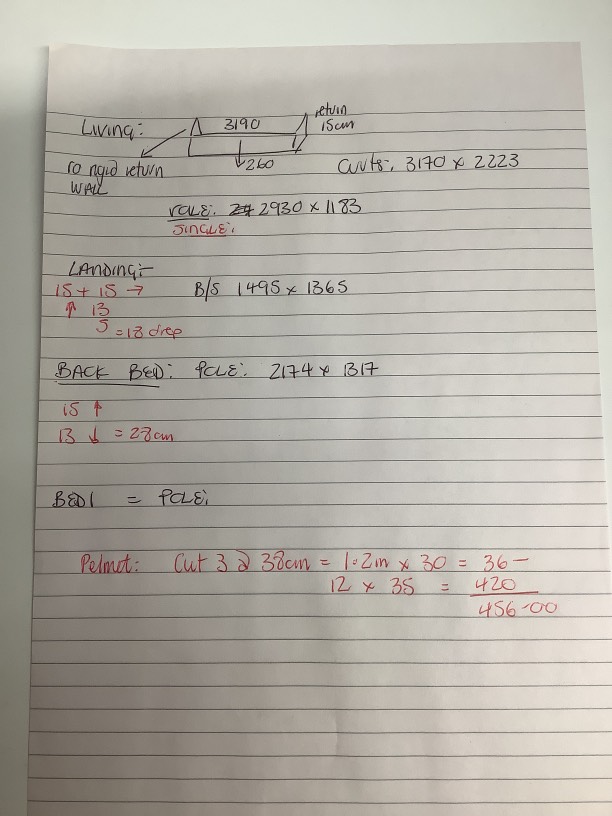 Living: 3190 return
15cm
260
to rigid return
WALL
Curts: 3170 x 2223
POLE: 2930 x 1183
SINGLE:
LANDING:-
15 + 15 → B/S 1495 x 1365
↑ 13
5 = 18 drop
BACK BED: POLE: 2174 x 1317
15 ↑
13 ↓ = 28cm
BED1 = POLE:
Pelmet: Cut 3 @ 38cm = 1.2m x 30 = 36 —
12 x 35 = 420
456-00